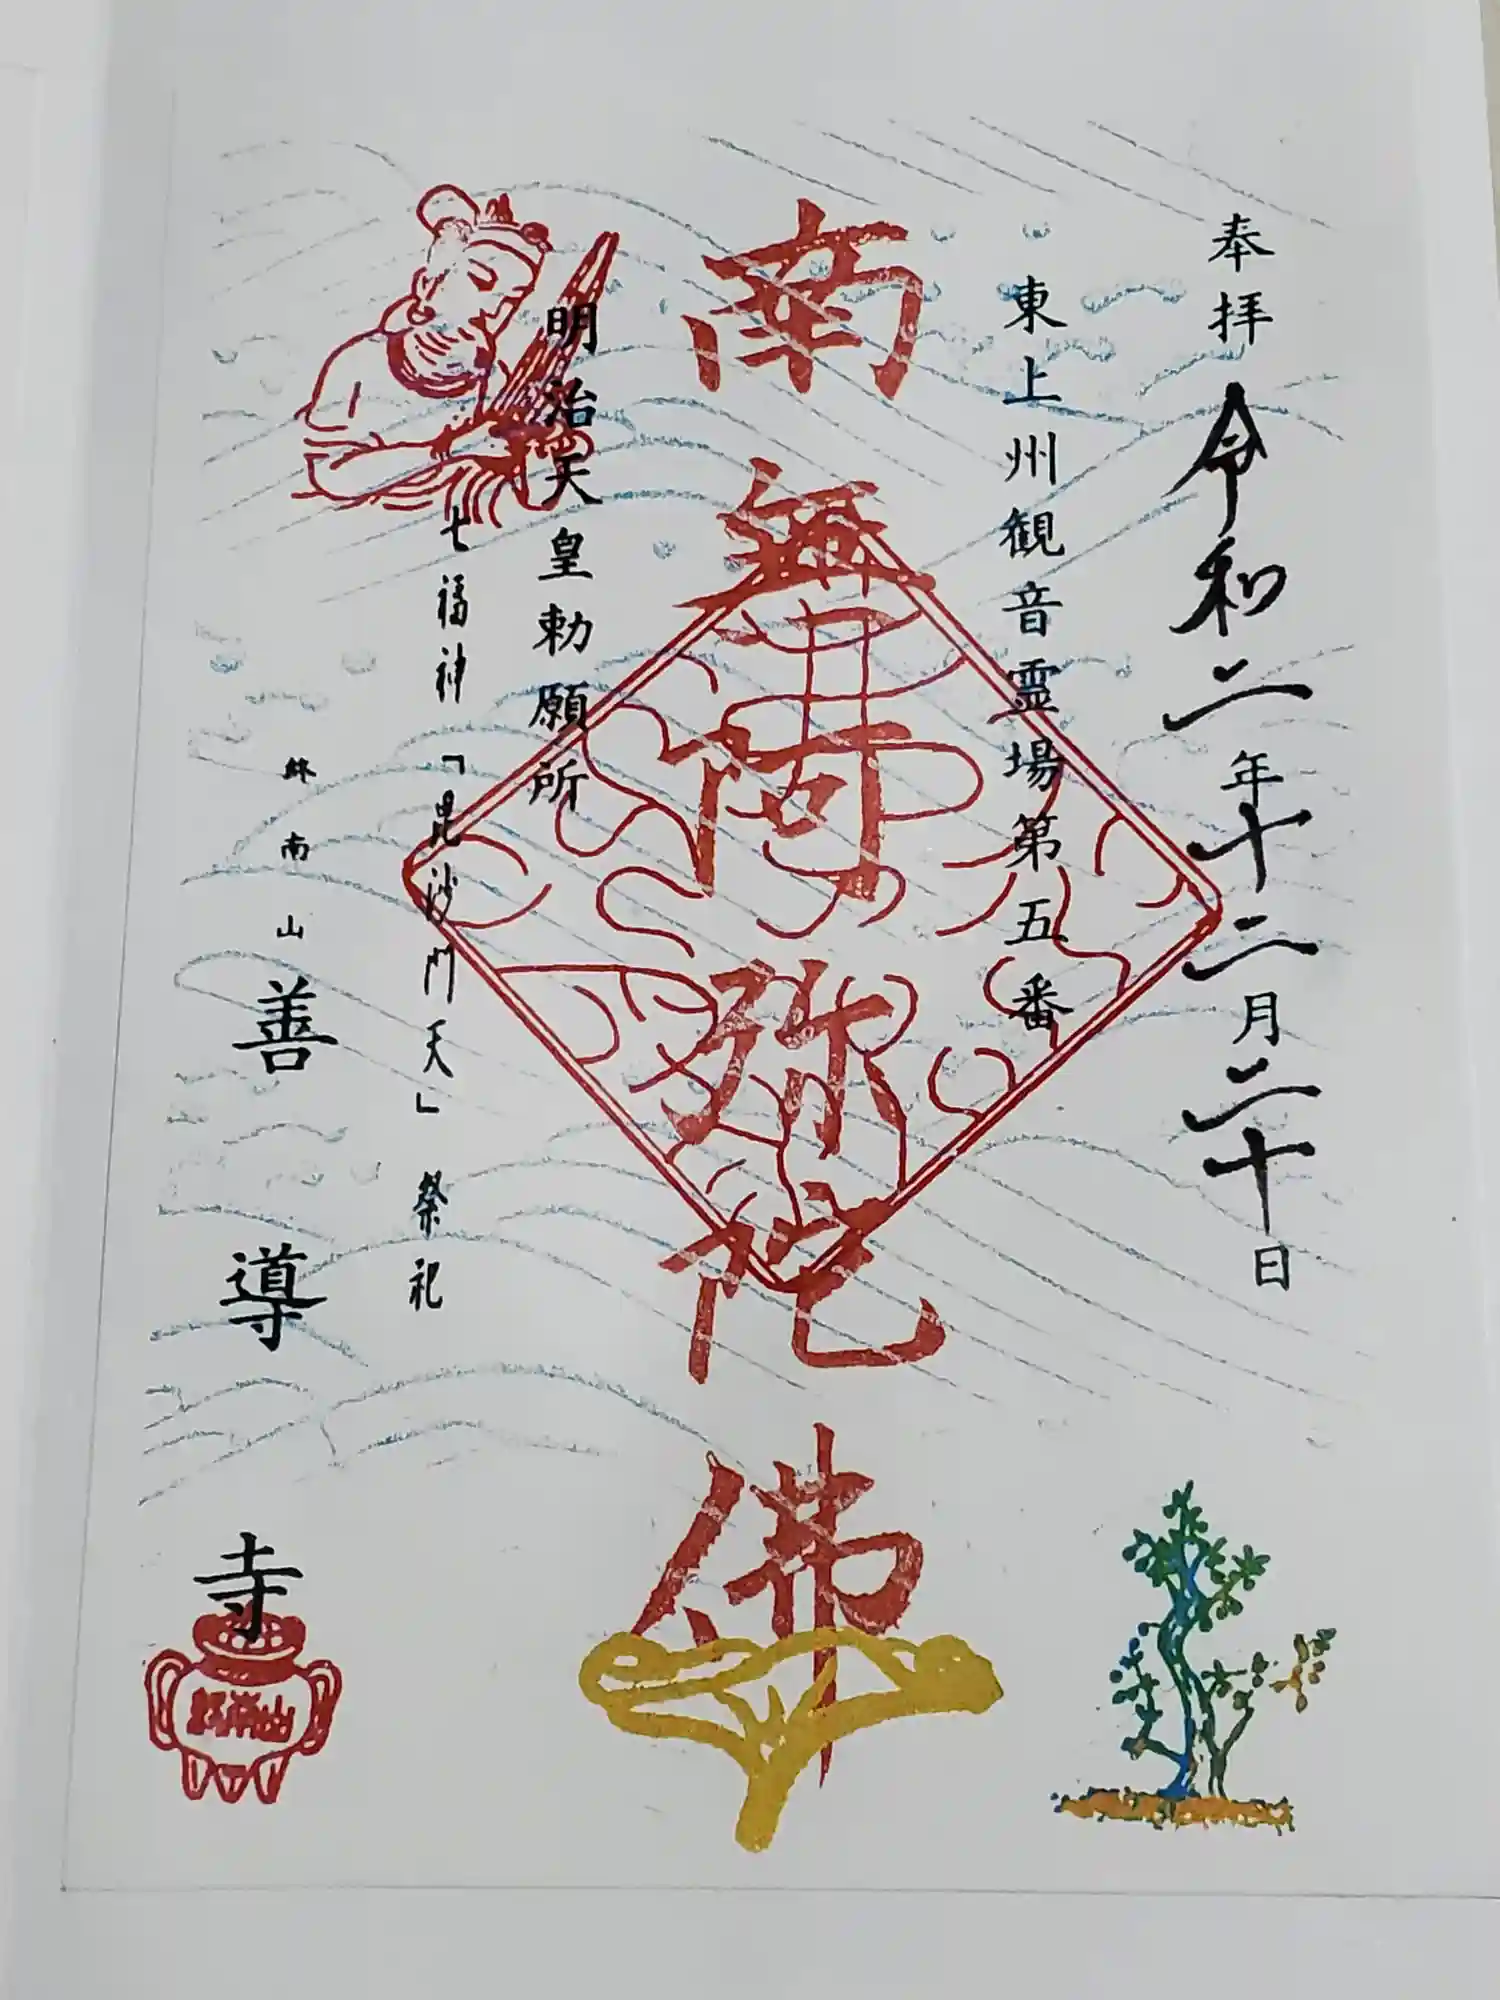 奉拝 令和二年十二月二十日
東上州観音霊場第五番
南無阿弥陀佛
明治天皇勅願所
七福神「毘沙門天」祭祀
終南山 善導寺
終南山